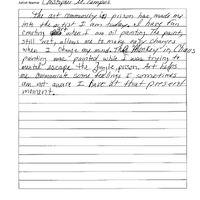 Artist Name: Christopher M. Campos
The art community in prison has made me
into the artist I am today. I have fun
creating when I am oil painting. The paint,
still wet, allows me to make easy changes
when I change my mind. The Monkey in Chaos
painting was painted while I was trying to
mental escape the jungle prison. Art helps
me communicate some feelings I sometimes
am not aware I have at that present
moment.